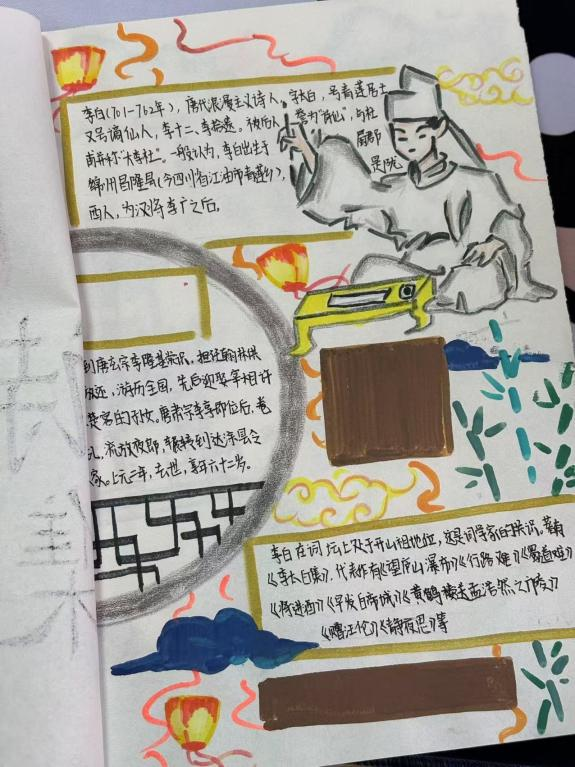 李白(701-762年)，唐代浪漫主义诗人，字太白，号青莲居士
又号谪仙人，李十二、李拾遗。被后人誉为"诗仙"，与杜
甫并称"大李杜"。一般认为，李白出生于
绵州昌隆县(今四川省江油市青莲乡)，
郡
是陇
西人，为汉将李广之后。
到唐玄宗李隆基赏识，担任翰林供
游历全国，先后迎娶宰相许
楚客的孙女。唐肃宗李亨即位后，卷
流放夜郎，辗转到达涂县令
家。上元二年，去世，享年六十二岁。
李白在词坛上处于开山祖地位，这是词学家的共识。著有
《李太白集》，代表作有《望庐山瀑布》《行路难》《蜀道难》
《将进酒》《早发白帝城》《黄鹤楼送孟浩然之广陵》
《赠汪伦》《静夜思》等
集